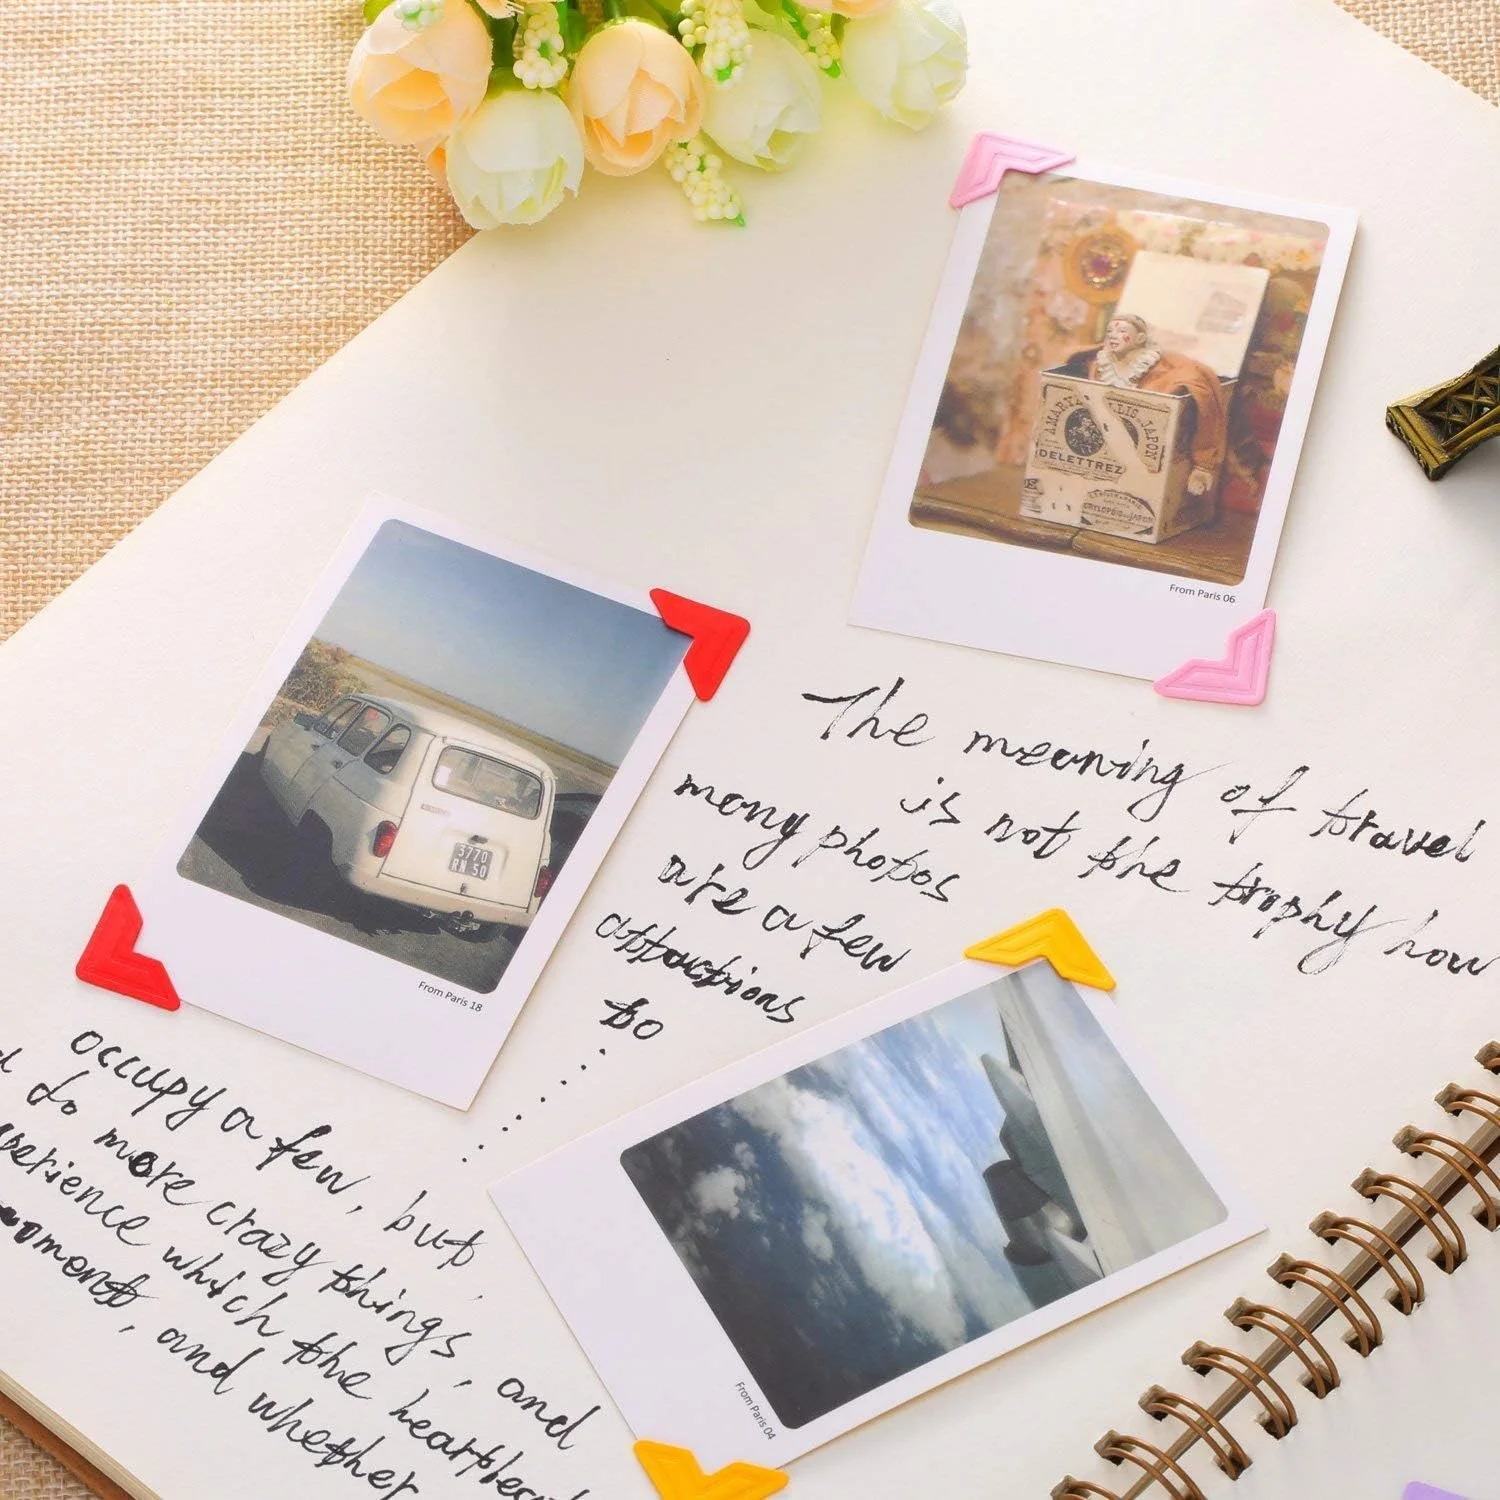 LAMARYA
JAPON
DELETTREZ
From Paris 06
3770
RN 50
From Paris 18
The meaning of travel
is not the trophy how
many photos
are a few
attactions
to
......
occupy a few, but,
do more crazy things, and
perience which the
oments, and whether
From Paris 04